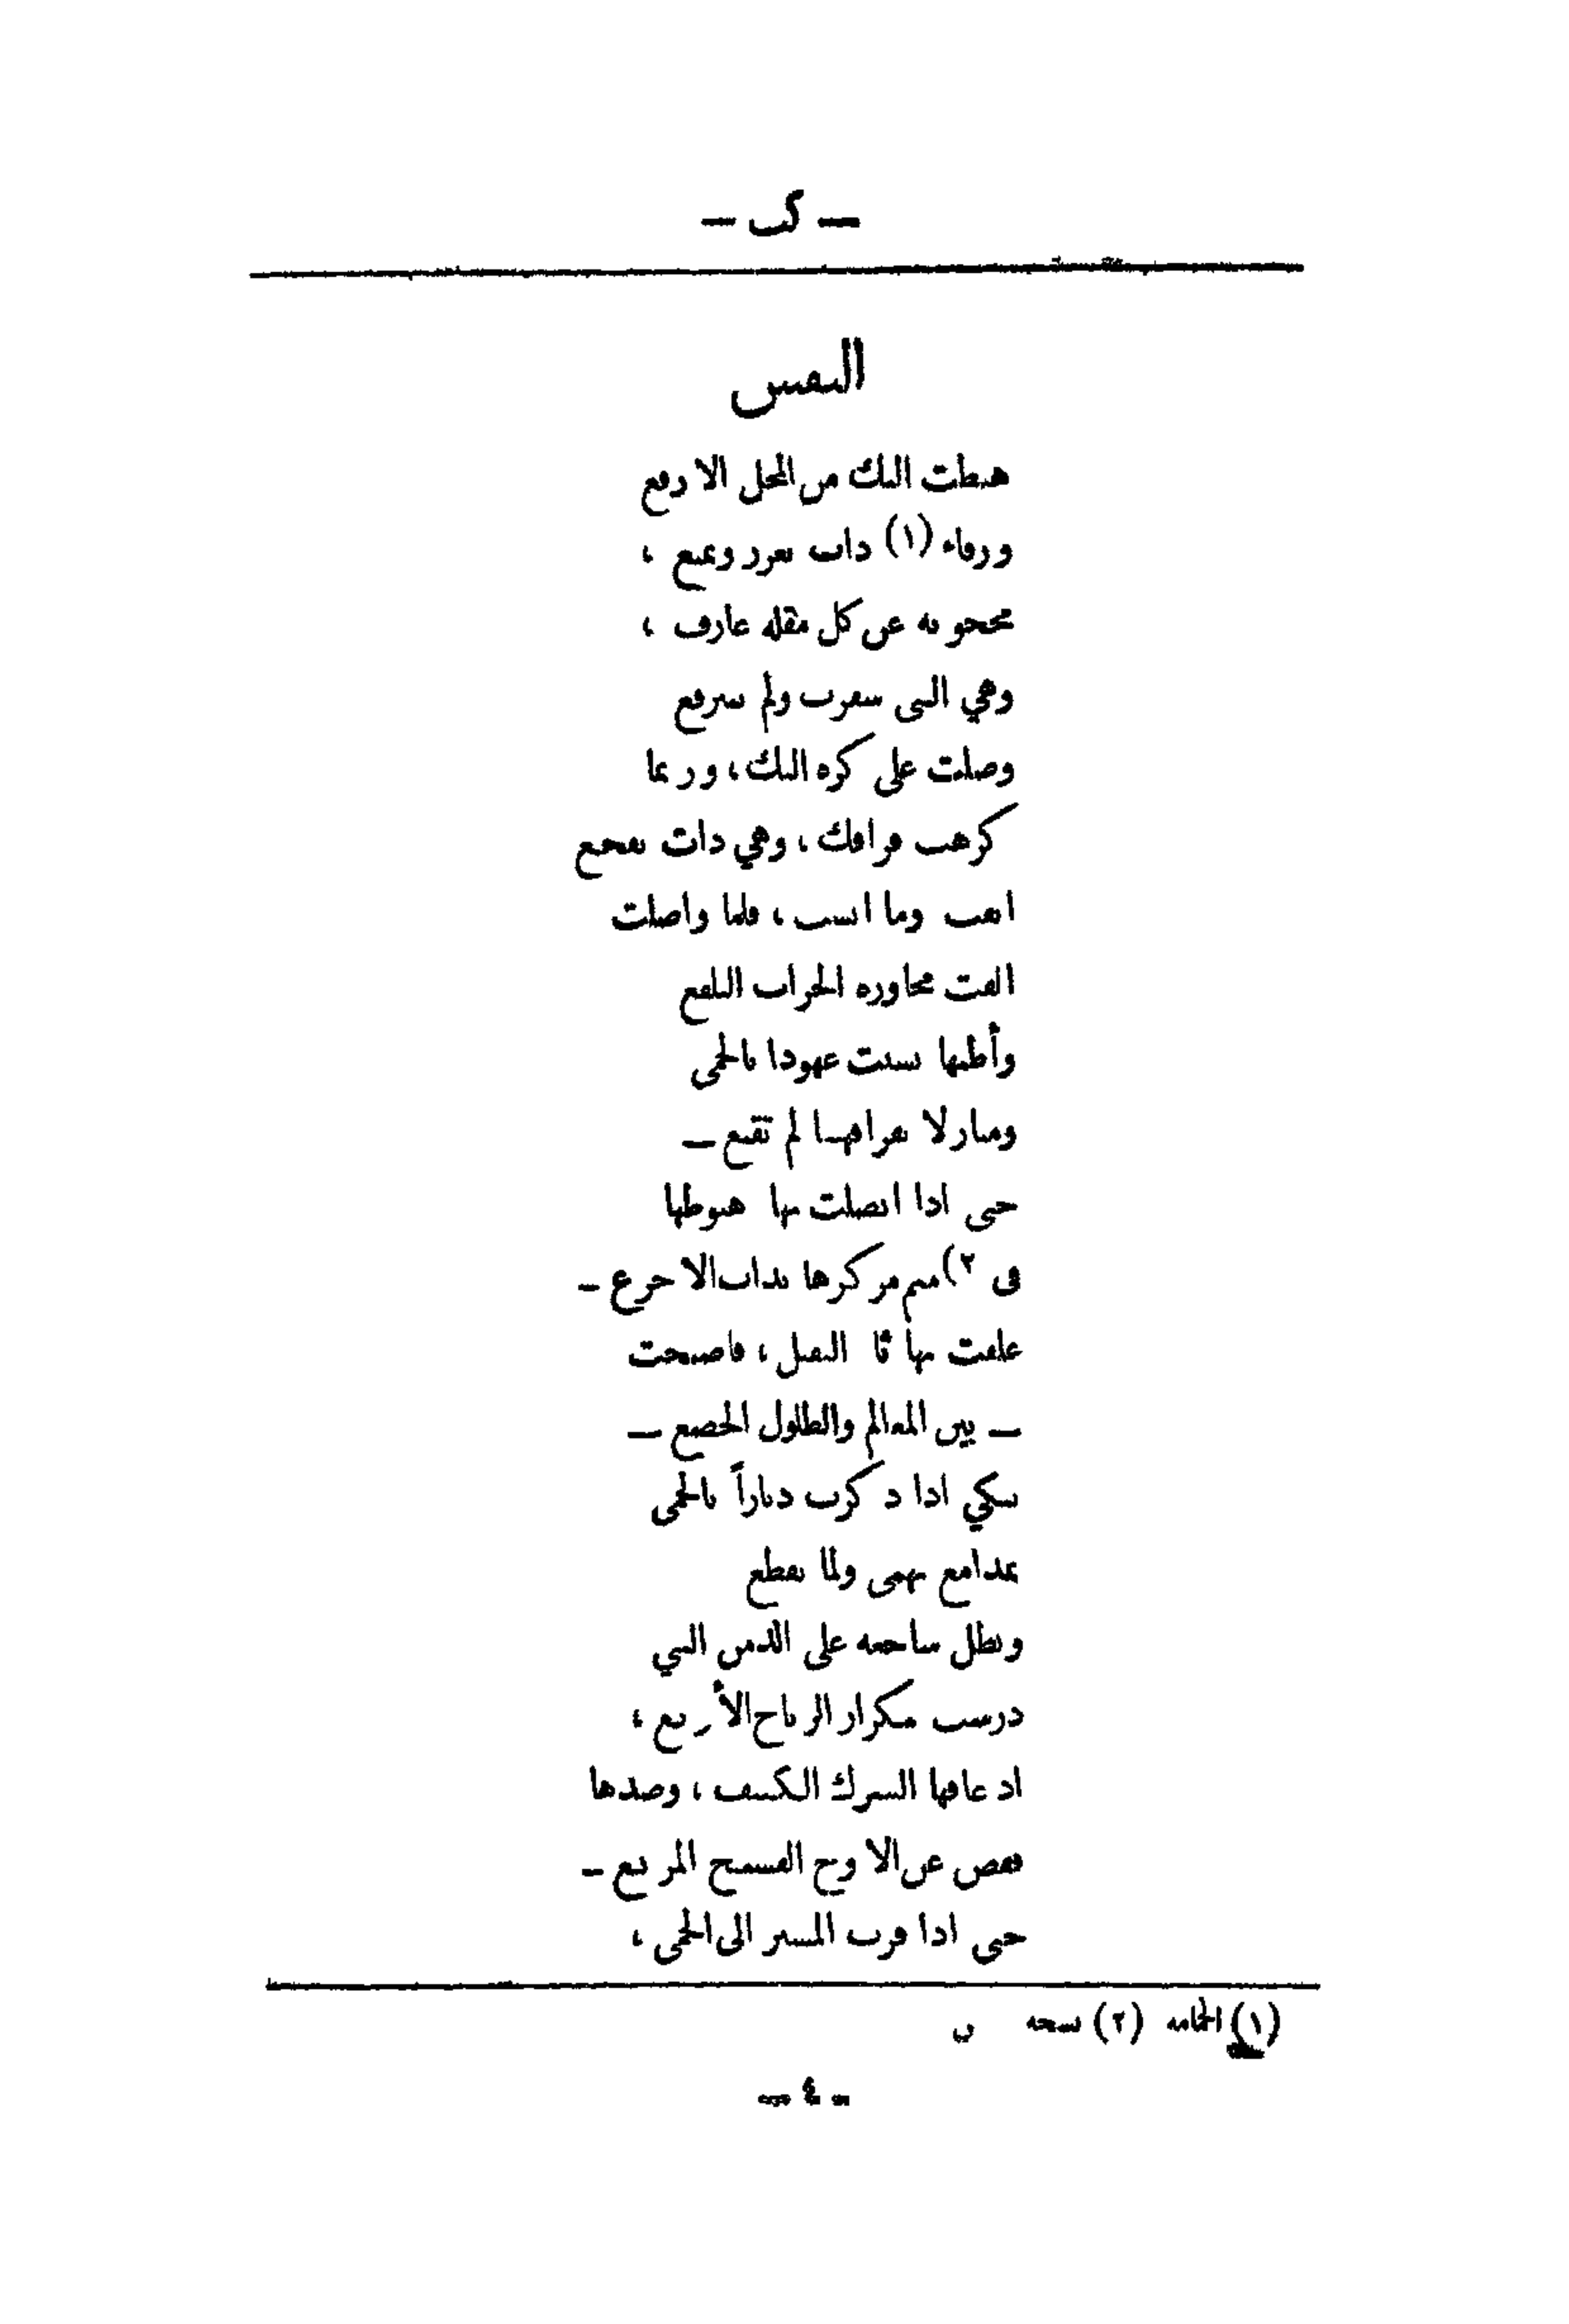 — كب —
النفس
هبطت اليك من المحل الارفع
ورقاء (١) ذات تعزز وتمنع ،
محجوبة عن كل مقلة عارف ،
وهي التي سفرت ولم تتبرقع
وصلت على كره اليك ، وربما
كرهت فراقك ، وهي ذات تفجع
انفت وما انست ، فلما واصلت
الفت مجاورة الخراب البلقع
وأظنها نسيت عهودا بالحمى
ومنازلا بفراقهـا لم تقنع —
حتى اذا اتصلت بهاء هبوطها
في ٢) ميم مركزها بذات الاجرع —
علقت بها ثاء الثقيل ، فاصبحت
— بين المعالم والطلول الخضع —
تبكي اذا ذكرت دياراً بالحمى
بمدامع تهمى ولما تقطع
وتظل ساجعة على الدمن التي
درست بتكرار الرياح الأربع ،
اذ عاقها الشرك الكثيف ، وصدها
قفص عن الاوج الفسيح المربع —
حتى اذا قرب المسير الى الحمى ،
(١) الحمامة (٢) نسخة
— ٤ —